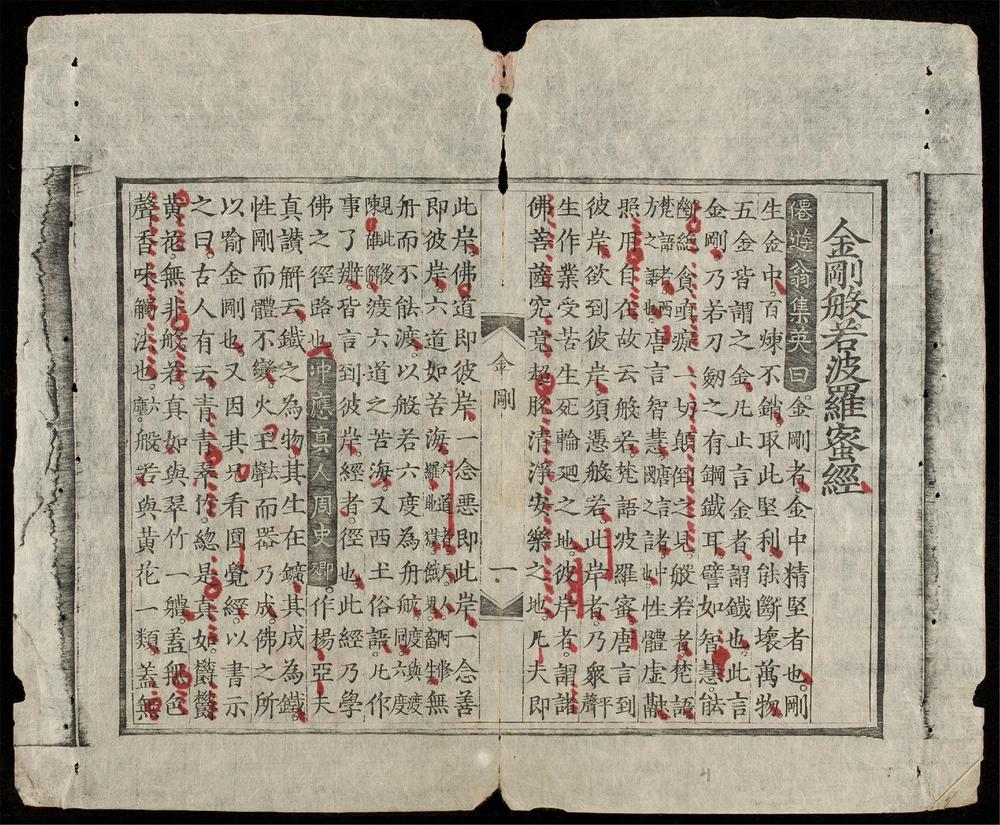 金剛般若波羅蜜經
倦遊翁集英曰金剛者金中精堅者也剛
生金中百煉不銷取此堅利能斷壞萬物
五金皆謂之金凡止言金者謂鐵也此言
金剛乃若刀劒之有鋼鐵耳譬如智慧能
斷絶貪嗔癡一切顛倒之見般若者梵語
梵語者西方之語也唐言智慧唐言者中國之言也性體虛融
照用自在故云般若梵語波羅蜜唐言到
彼岸欲到彼岸須憑般若此岸者乃衆平聲
生作業受苦生死輪廻之地彼岸者謂諸
佛菩薩究竟超脫清淨安樂之地凡夫即
金剛
一
此岸佛道即彼岸一念惡即此岸一念善
即彼岸六道如苦海六道者天人阿修羅地獄餓鬼畜生無
舟而不能渡以般若六度為舟航渡與度同六度
見此後陳雄解渡六道之苦海又西土俗語凡作
事了辦皆言到彼岸經者徑也此經乃學
佛之徑路也冲應真人周史卿作楊亞夫
真讚解云鐵之為物其生在鑛其成為鐵
性剛而體不變火王聲而器乃成佛之所
以喻金剛也又因其兄看圓覺經以書示
之曰古人有云青青翠竹緫是真如欝欝
黃花無非般若真如與翠竹一體蓋無色
聲香味觸法也六塵般若與黃花一類蓋無